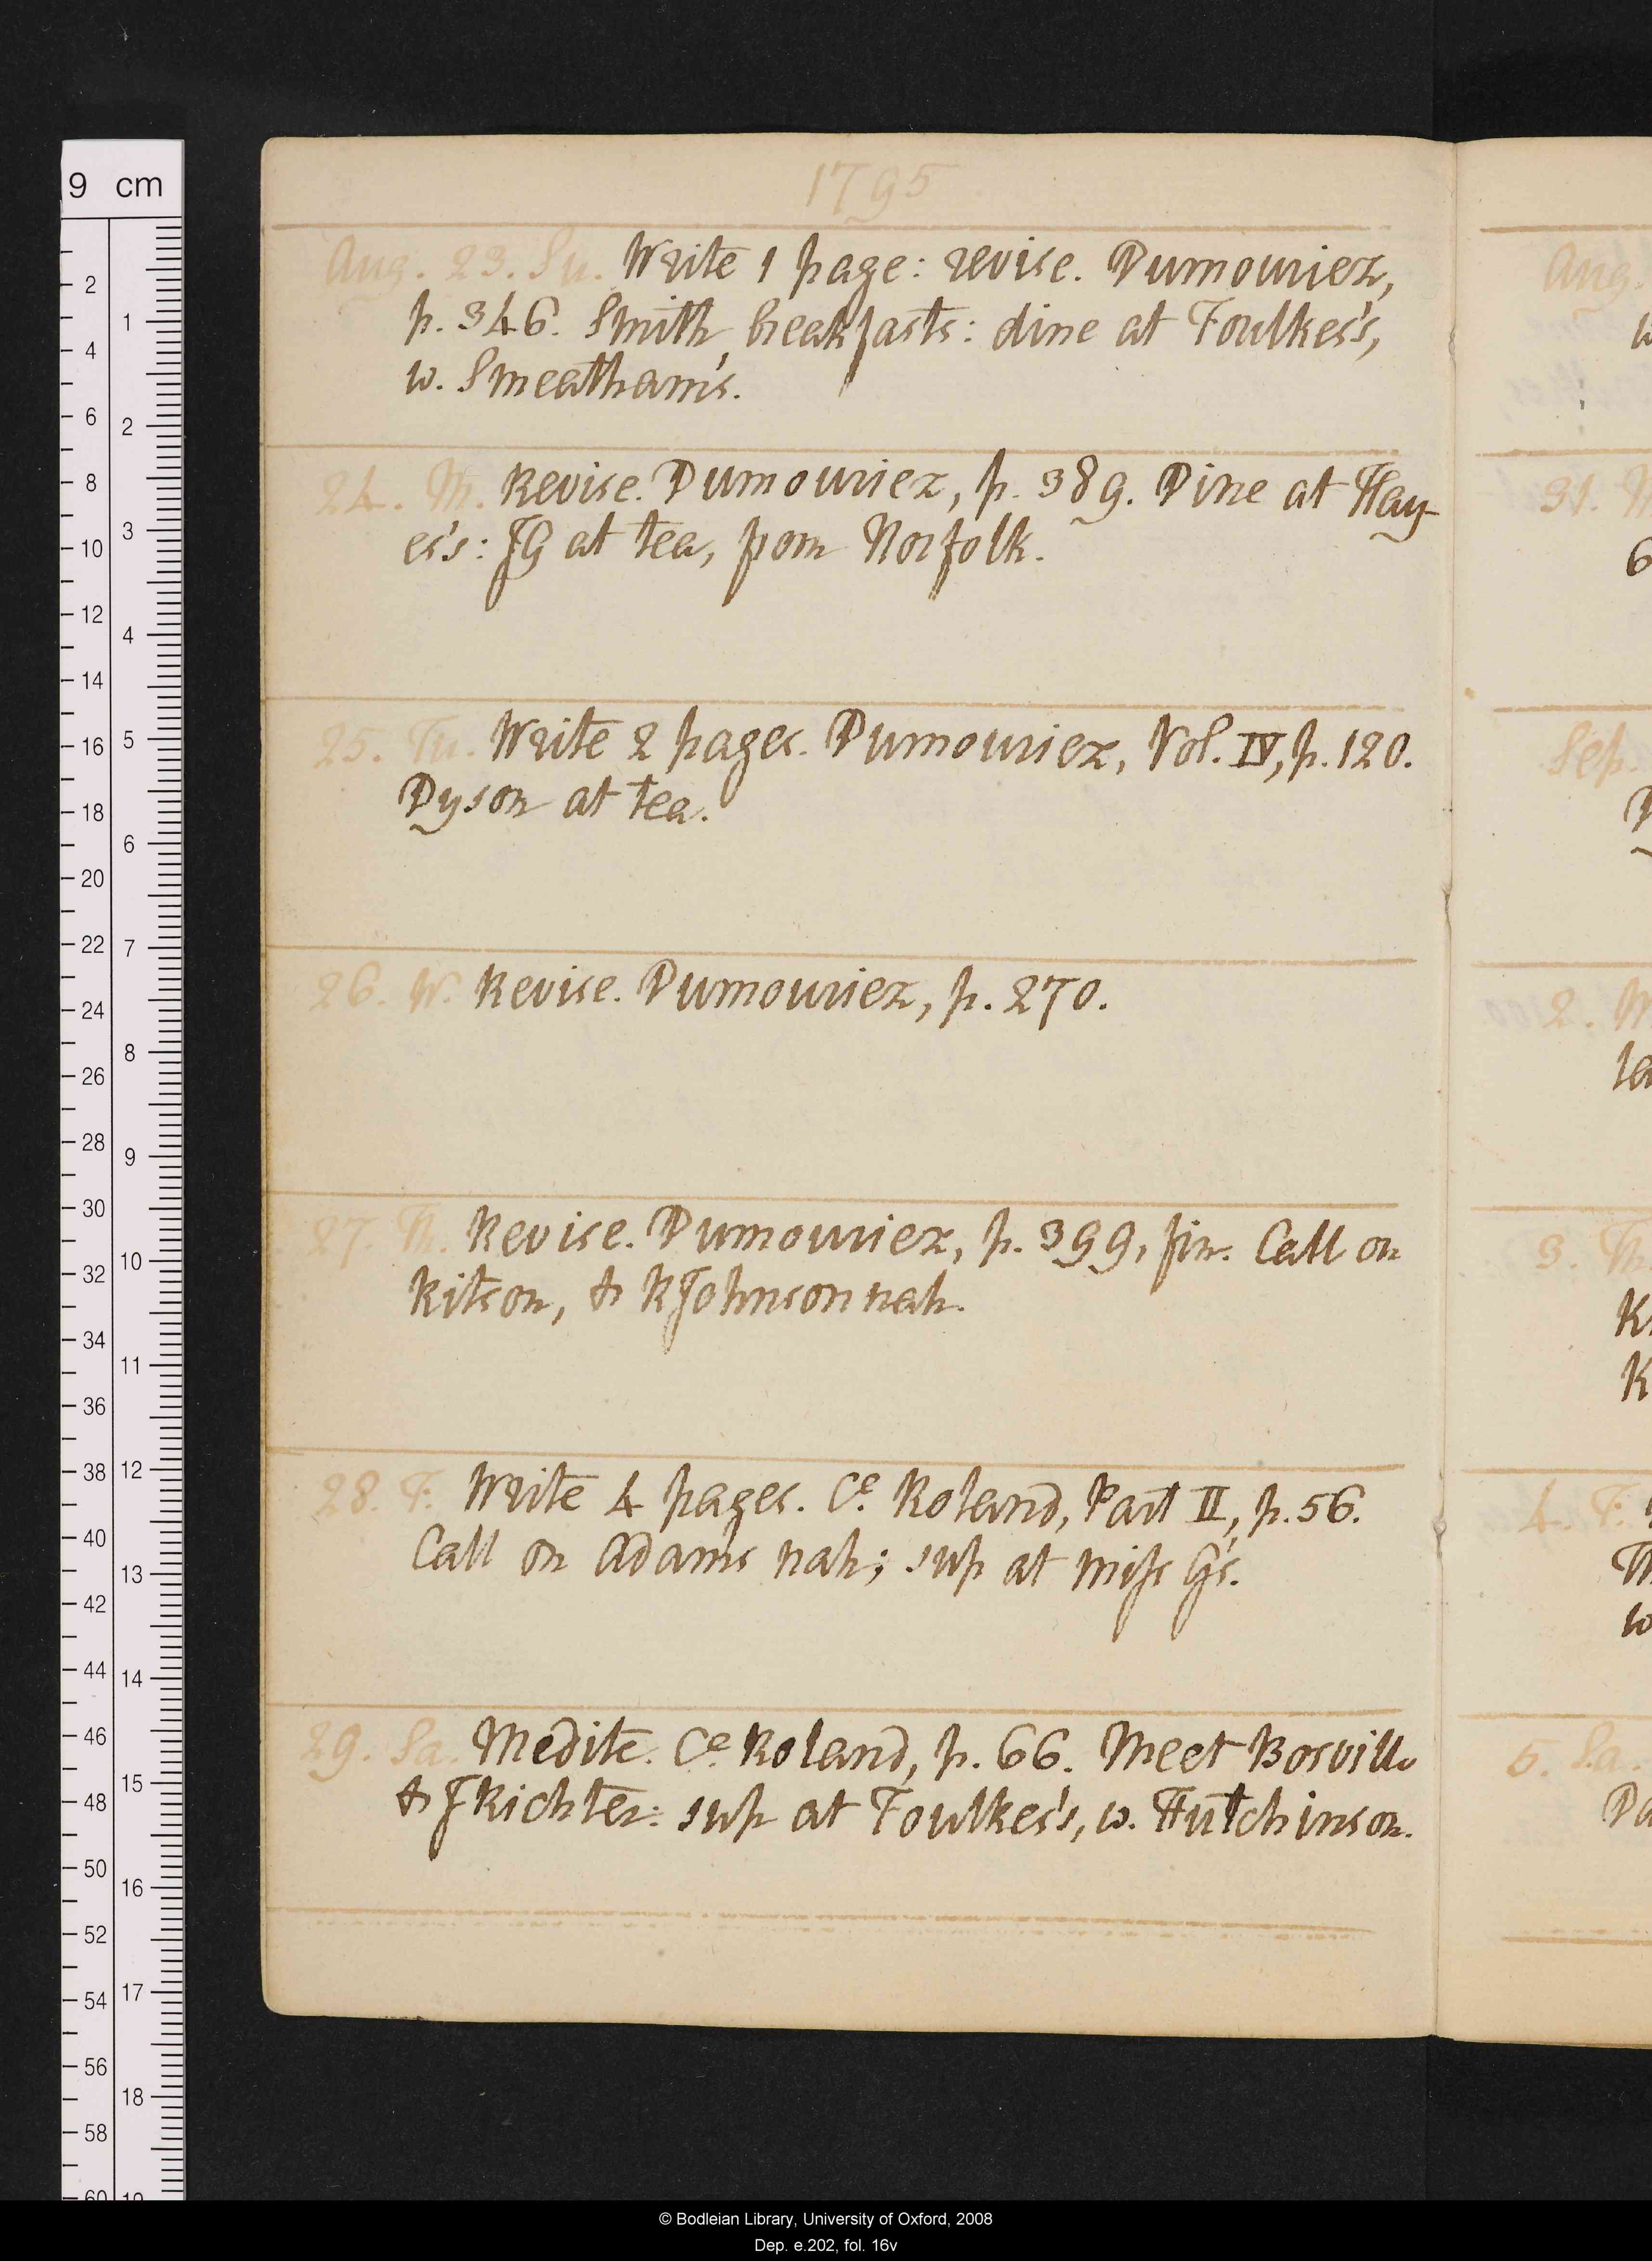 1795
Aug. 23. Su. Write 1 page: revise. Dumouriez,
p. 346. Smith breakfasts: dine at Foulkes's,
w. Smeatham's.
24. M. Revise. Dumouriez, p. 389. Dine at Hay-
es's: JG at tea, from Norfolk.
25. Tu. Write 2 pages. Dumouriez, Vol. IV, p. 120.
Dyson at tea.
26. W. Revise. Dumouriez, p. 270.
27. Th. Revise. Dumouriez, p. 399, fin. Call on
Ritson, & RJohnson nah.
28. F. Write 4 pages. Ce. Roland, Part II, p. 56.
Call on Adams nah; sup at miss G's.
29. Sa. Medite. Ce. Roland, p. 66. Meet Bosville
& JRichter: sup at Foulkes's, w. Hutchinson.
Aug.
w
31. M
6
Sep.
D
2. W
la
3. Th.
K
K
4. F.
Th
w
5. Sa.
Da
9 cm
2
4
6
8
10
12
14
16
18
20
22
24
26
28
30
32
34
36
38
40
42
44
46
48
50
52
54
56
58
60
1
2
3
4
5
6
7
8
9
10
11
12
13
14
15
16
17
18
19
© Bodleian Library, University of Oxford, 2008
Dep. e.202, fol. 16v